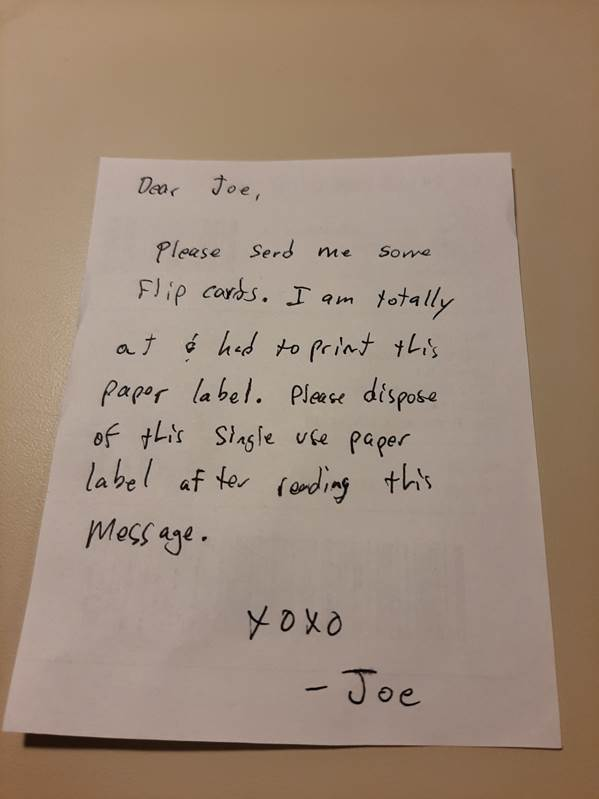 Dear Joe,
Please send me some
Flip cards. I am totally
at & had to print this
paper label. Please dispose
of this single use paper
label after reading this
Message.
XOXO
- Joe